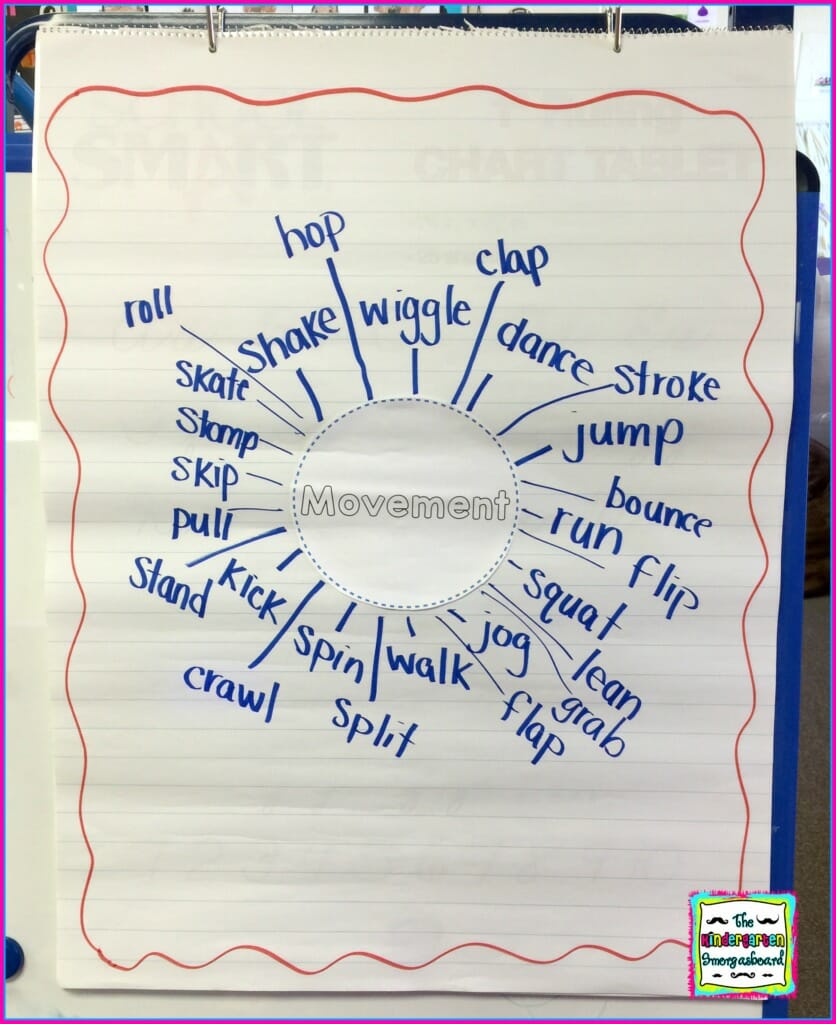 hop
clap
roll
shake
wiggle
dance
stroke
skate
jump
stomp
skip
Movement
bounce
pull
run
flip
stand
kick
squat
spin
walk
jog
lean
crawl
split
flap
grab
SMART
CHART TABLET
The
Kindergarten
Smorgasboard